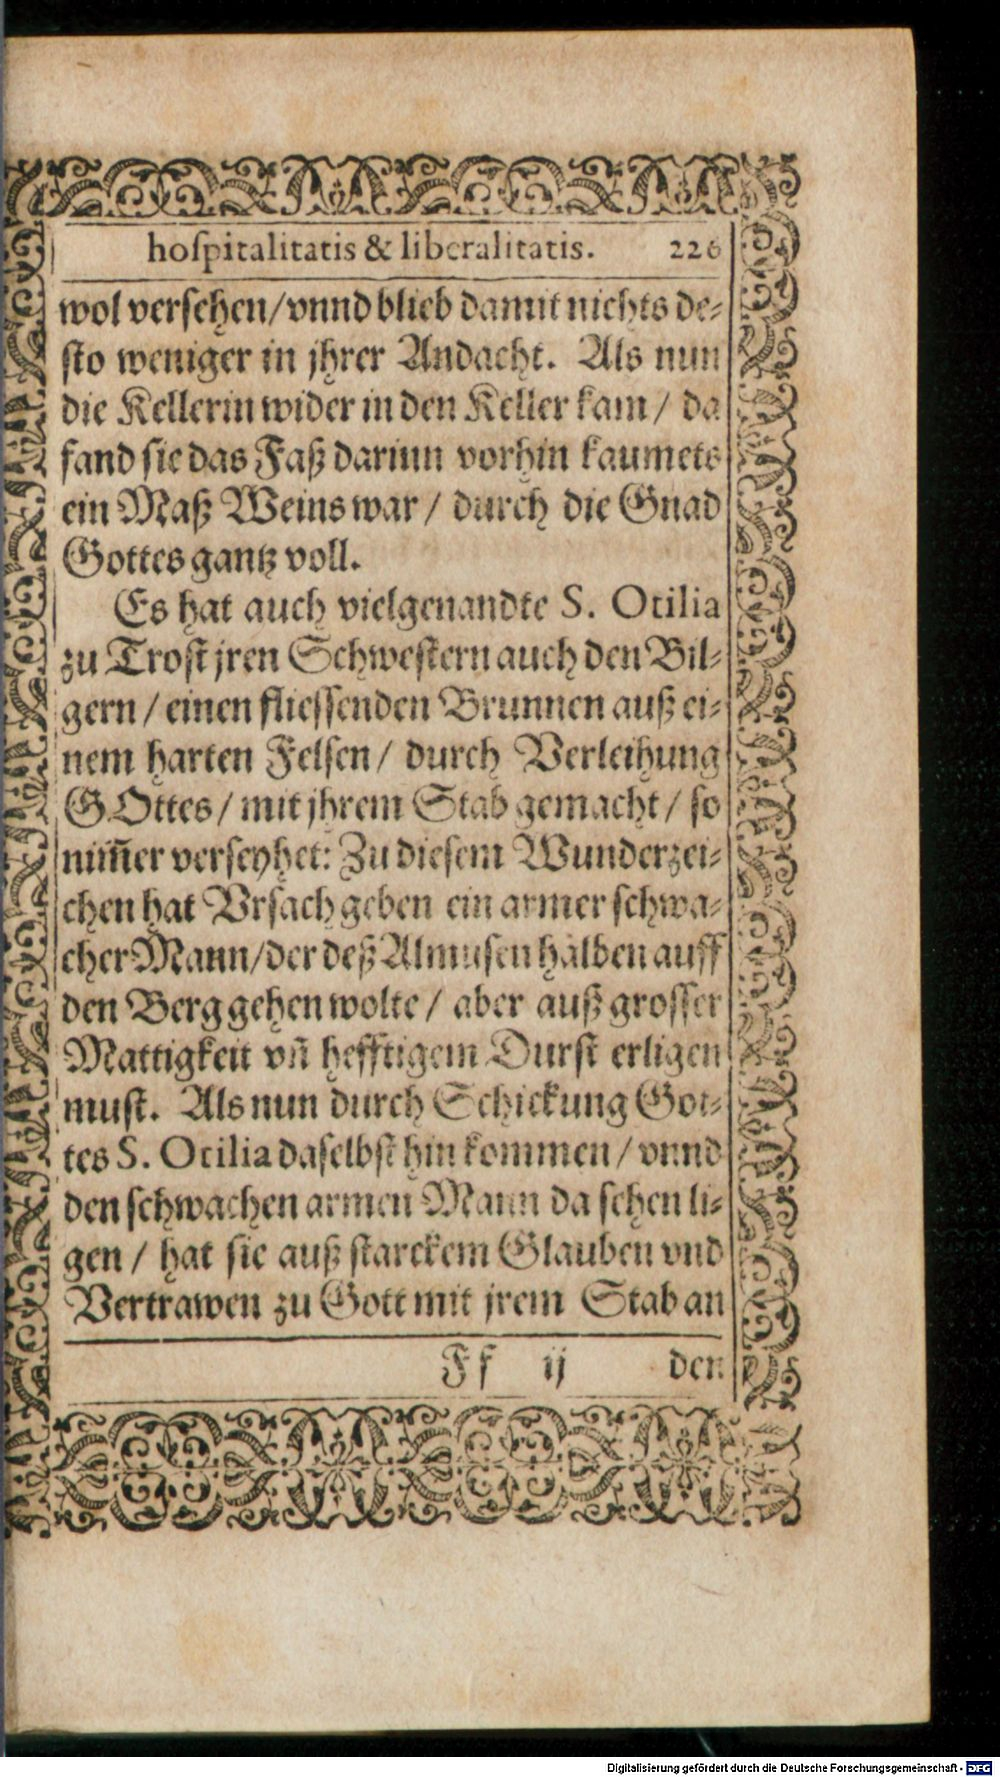 hoſpitalitatis & liberalitatis. 226
wol verſehen/vnnd blieb damit nichts de-
ſto weniger in jhrer Andacht. Als nun
die Kellerin wider in den Keller kam/ da
fand ſie das Faß darinn vorhin kaumets
ein Maß Weins war/ durch die Gnad
Gottes gantz voll.
Es hat auch vielgenandte S. Otilia
zu Troſt jren Schweſtern auch den Bil-
gern/ einen flieſſenden Brunnen auß ei-
nem harten Felſen/ durch Verleihung
GOttes/ mit jhrem Stab gemacht/ ſo
nim̃er verſeyhet: Zu dieſem Wunderzei-
chen hat Vrſach geben ein armer ſchwa-
cher Mann/der deß Almuſen halben auff
den Berg gehen wolte/ aber auß groſſer
Mattigkeit vñ hefftigem Durſt erligen
muſt. Als nun durch Schickung Got-
tes S. Otilia daſelbſt hin kommen/ vnnd
den ſchwachen armen Mann da ſehen li-
gen/ hat ſie auß ſtarckem Glauben vnd
Vertrawen zu Gott mit jrem Stab an
Ff ij den
Digitalisierung gefördert durch die Deutsche Forschungsgemeinschaft - DFG